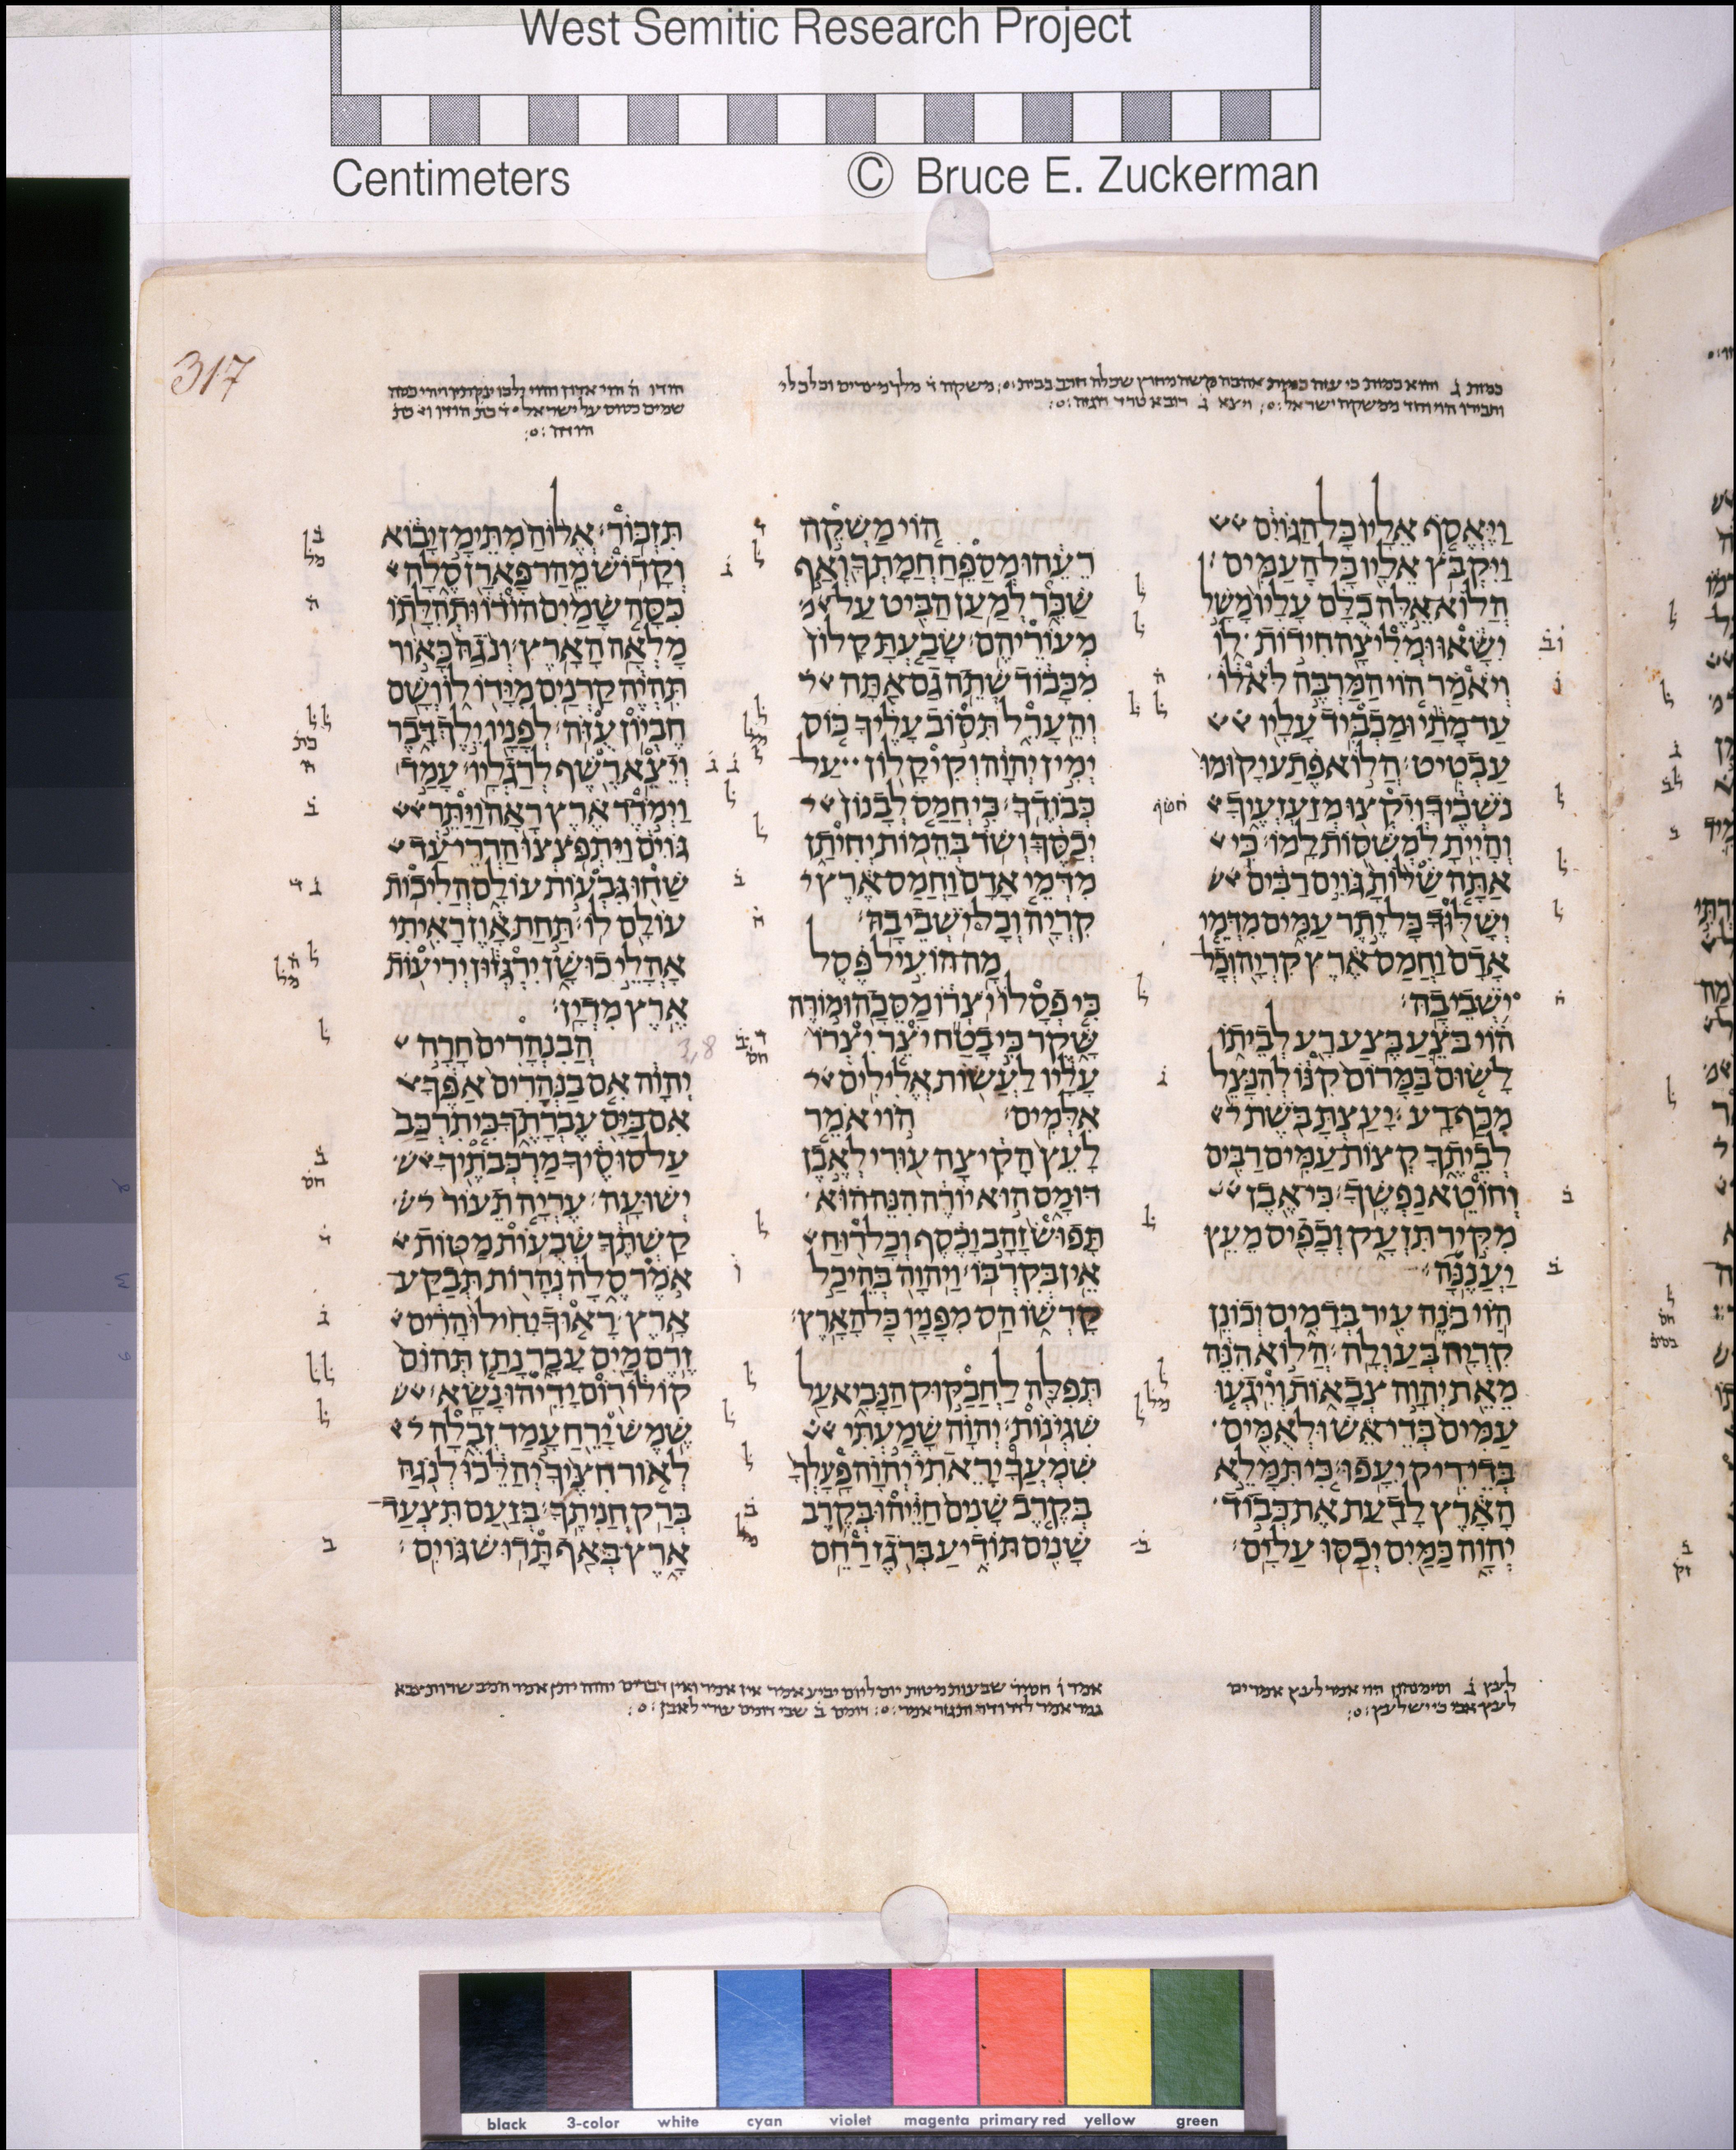 West Semitic Research Project
Centimeters © Bruce E. Zuckerman
317
וַיֶּאֱסֹף אֵלָיו כָּל הַגּוֹיִם
וַיִּקְבֹּץ אֵלָיו כָּל הָעַמִּים׃
הֲלוֹא אֵלֶּה כֻלָּם עָלָיו מָשָׁל
יִשָּׂאוּ וּמְלִיצָה חִידוֹת לוֹ
וְיֹאמַר הוֹי הַמַּרְבֶּה לֹּא לוֹ
עַד מָתַי וּמַכְבִּיד עָלָיו
עַבְטִיט׃ הֲלוֹא פֶתַע יָקוּמוּ
נֹשְׁכֶיךָ וְיִקְצוּ מְזַעְזְעֶיךָ
וְהָיִיתָ לִמְשִׁסּוֹת לָמוֹ׃ כִּי
אַתָּה שַׁלּוֹתָ גּוֹיִם רַבִּים
יְשָׁלּוּךָ כָּל יֶתֶר עַמִּים מִדְּמֵי
אָדָם וַחֲמַס אֶרֶץ קִרְיָה וְכָל
יֹשְׁבֵי בָהּ׃
הוֹי בֹּצֵעַ בֶּצַע רָע לְבֵיתוֹ
לָשׂוּם בַּמָּרוֹם קִנּוֹ לְהִנָּצֵל
מִכַּף רָע׃ יָעַצְתָּ בֹּשֶׁת
לְבֵיתֶךָ קְצוֹת עַמִּים רַבִּים
וְחוֹטֵא נַפְשֶׁךָ׃ כִּי אֶבֶן
מִקִּיר תִּזְעָק וְכָפִיס מֵעֵץ
יַעֲנֶנָּה׃
הוֹי בֹּנֶה עִיר בְּדָמִים וְכוֹנֵן
קִרְיָה בְּעַוְלָה׃ הֲלוֹא הִנֵּה
מֵאֵת יְהוָה צְבָאוֹת וְיִיגְעוּ
עַמִּים בְּדֵי אֵשׁ וּלְאֻמִּים
בְּדֵי רִיק יִעָפוּ׃ כִּי תִּמָּלֵא
הָאָרֶץ לָדַעַת אֶת כְּבוֹד
יְהוָה כַּמַּיִם יְכַסּוּ עַל יָם׃
הוֹי מַשְׁקֵה
רֵעֵהוּ מְסַפֵּחַ חֲמָתְךָ וְאַף
שַׁכֵּר לְמַעַן הַבִּיט עַל
מְעוֹרֵיהֶם׃ שָׂבַעְתָּ קָלוֹן
מִכָּבוֹד שְׁתֵה גַם אַתָּה
וְהֵעָרֵל תִּסּוֹב עָלֶיךָ כּוֹס
יְמִין יְהוָה וְקִיקָלוֹן עַל
כְּבוֹדֶךָ׃ כִּי חֲמַס לְבָנוֹן
יְכַסֶּךָּ וְשֹׁד בְּהֵמוֹת יְחִיתַן
מִדְּמֵי אָדָם וַחֲמַס אֶרֶץ
קִרְיָה וְכָל יֹשְׁבֵי בָהּ׃
מָה הוֹעִיל פֶּסֶל
כִּי פְסָלוֹ יֹצְרוֹ מַסֵּכָה וּמוֹרֶה
שָּׁקֶר כִּי בָטַח יֹצֵר יִצְרוֹ
עָלָיו לַעֲשׂוֹת אֱלִילִים
אִלְּמִים׃ הוֹי אֹמֵר
לָעֵץ הָקִיצָה עוּרִי לְאֶבֶן
דּוּמָם הוּא יוֹרֶה הִנֵּה הוּא
תָּפוּשׂ זָהָב וָכֶסֶף וְכָל רוּחַ
אֵין בְּקִרְבּוֹ׃ וַיהוָה בְּהֵיכַל
קָדְשׁוֹ הַס מִפָּנָיו כָּל הָאָרֶץ׃
תְּפִלָּה לַחֲבַקּוּק הַנָּבִיא עַל
שִׁגְיֹנוֹת׃ יְהוָה שָׁמַעְתִּי
שִׁמְעֲךָ יָרֵאתִי יְהוָה פָּעָלְךָ
בְּקֶרֶב שָׁנִים חַיֵּיהוּ בְּקֶרֶב
שָׁנִים תּוֹדִיעַ בְּרֹגֶז רַחֵם
תִּזְכּוֹר׃ אֱלוֹהַ מִתֵּימָן יָבוֹא
וְקָדוֹשׁ מֵהַר פָּארָן סֶלָה
כִּסָּה שָׁמַיִם הוֹדוֹ וּתְהִלָּתוֹ
מָלְאָה הָאָרֶץ׃ וְנֹגַהּ כָּאוֹר
תִּהְיֶה קַרְנַיִם מִיָּדוֹ לוֹ וְשָׁם
חֶבְיוֹן עֻזֹּה׃ לְפָנָיו יֵלֶךְ דָּבֶר
וְיֵצֵא רֶשֶׁף לְרַגְלָיו׃ עָמַד
וַיְמֹדֶד אֶרֶץ רָאָה וַיַּתֵּר
גּוֹיִם וַיִּתְפֹּצְצוּ הַרְרֵי עַד
שַׁחוּ גִּבְעוֹת עוֹלָם הֲלִיכוֹת
עוֹלָם לוֹ׃ תַּחַת אָוֶן רָאִיתִי
אָהֳלֵי כוּשָׁן יִרְגְּזוּן יְרִיעוֹת
אֶרֶץ מִדְיָן׃
הֲבִנְהָרִים חָרָה
יְהוָה אִם בַּנְּהָרִים אַפֶּךָ
אִם בַּיָּם עֶבְרָתֶךָ כִּי תִרְכַּב
עַל סוּסֶיךָ מַרְכְּבֹתֶיךָ
יְשׁוּעָה׃ עֶרְיָה תֵעוֹר
קַשְׁתֶּךָ שְׁבֻעוֹת מַטּוֹת
אֹמֶר סֶלָה נְהָרוֹת תְּבַקַּע
אָרֶץ׃ רָאוּךָ יָחִילוּ הָרִים
זֶרֶם מַיִם עָבָר נָתַן תְּהוֹם
קוֹלוֹ רוֹם יָדֵיהוּ נָשָׂא׃
שֶׁמֶשׁ יָרֵחַ עָמַד זְבֻלָה
לְאוֹר חִצֶּיךָ יְהַלֵּכוּ לְנֹגַהּ
בְּרַק חֲנִיתֶךָ׃ בְּזַעַם תִּצְעַד
אָרֶץ בְּאַף תָּדוּשׁ גּוֹיִם׃
3,8
black 3-color white cyan violet magenta primary red yellow green